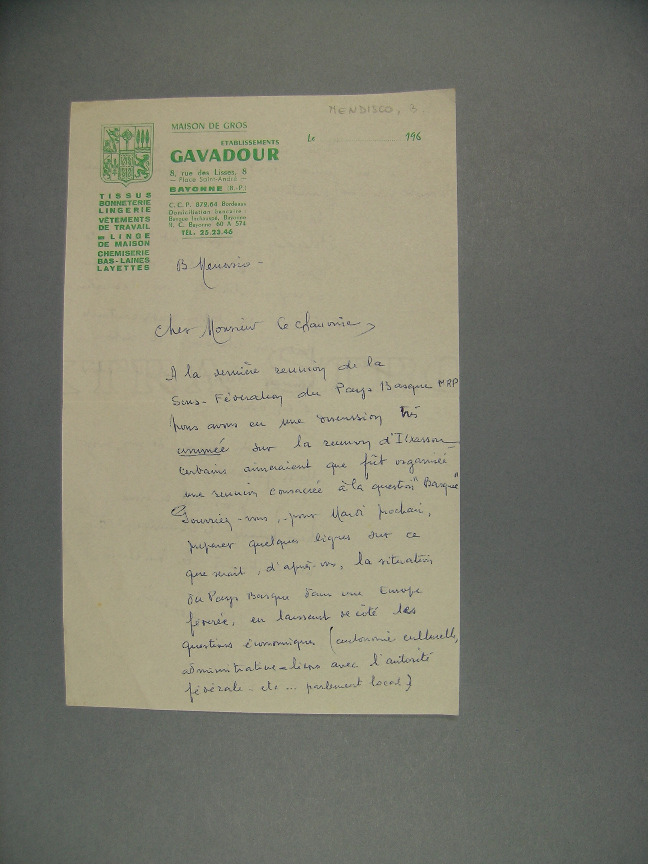 MENDISCO, 3.
MAISON DE GROS
ETABLISSEMENTS
GAVADOUR
8, rue des Lisses, 8
— Place Saint-André —
BAYONNE (B.-P.)
C. C. P. 872.64 Bordeaux
Domiciliation bancaire :
Banque Inchauspé, Bayonne
R. C. Bayonne 60 A 574
TÉL. 25.23.46
Le 196
TISSUS
BONNETERIE
LINGERIE
VÊTEMENTS
DE TRAVAIL
LINGE
DE MAISON
CHEMISERIE
BAS-LAINES
LAYETTES
B.
Cher Monsieur le Chanoine,
A la dernière reunion de la
Sous-Fédération du Pays Basque MRP
nous avons eu une discussion très
animée sur la reunion d'Itxassou
certains aimeraient que fût organisée
une reunion consacrée à la question "Basque"
Pourriez-vous, pour Mardi prochain,
preparer quelques lignes sur ce
que serait, d'après vs, la situation
du Pays Basque dans une Europe
féderée, en laissant de côté les
questions économiques (autonomie culturelle,
administrative - liens avec l'autorité
fédérale - etc ... parlement local)